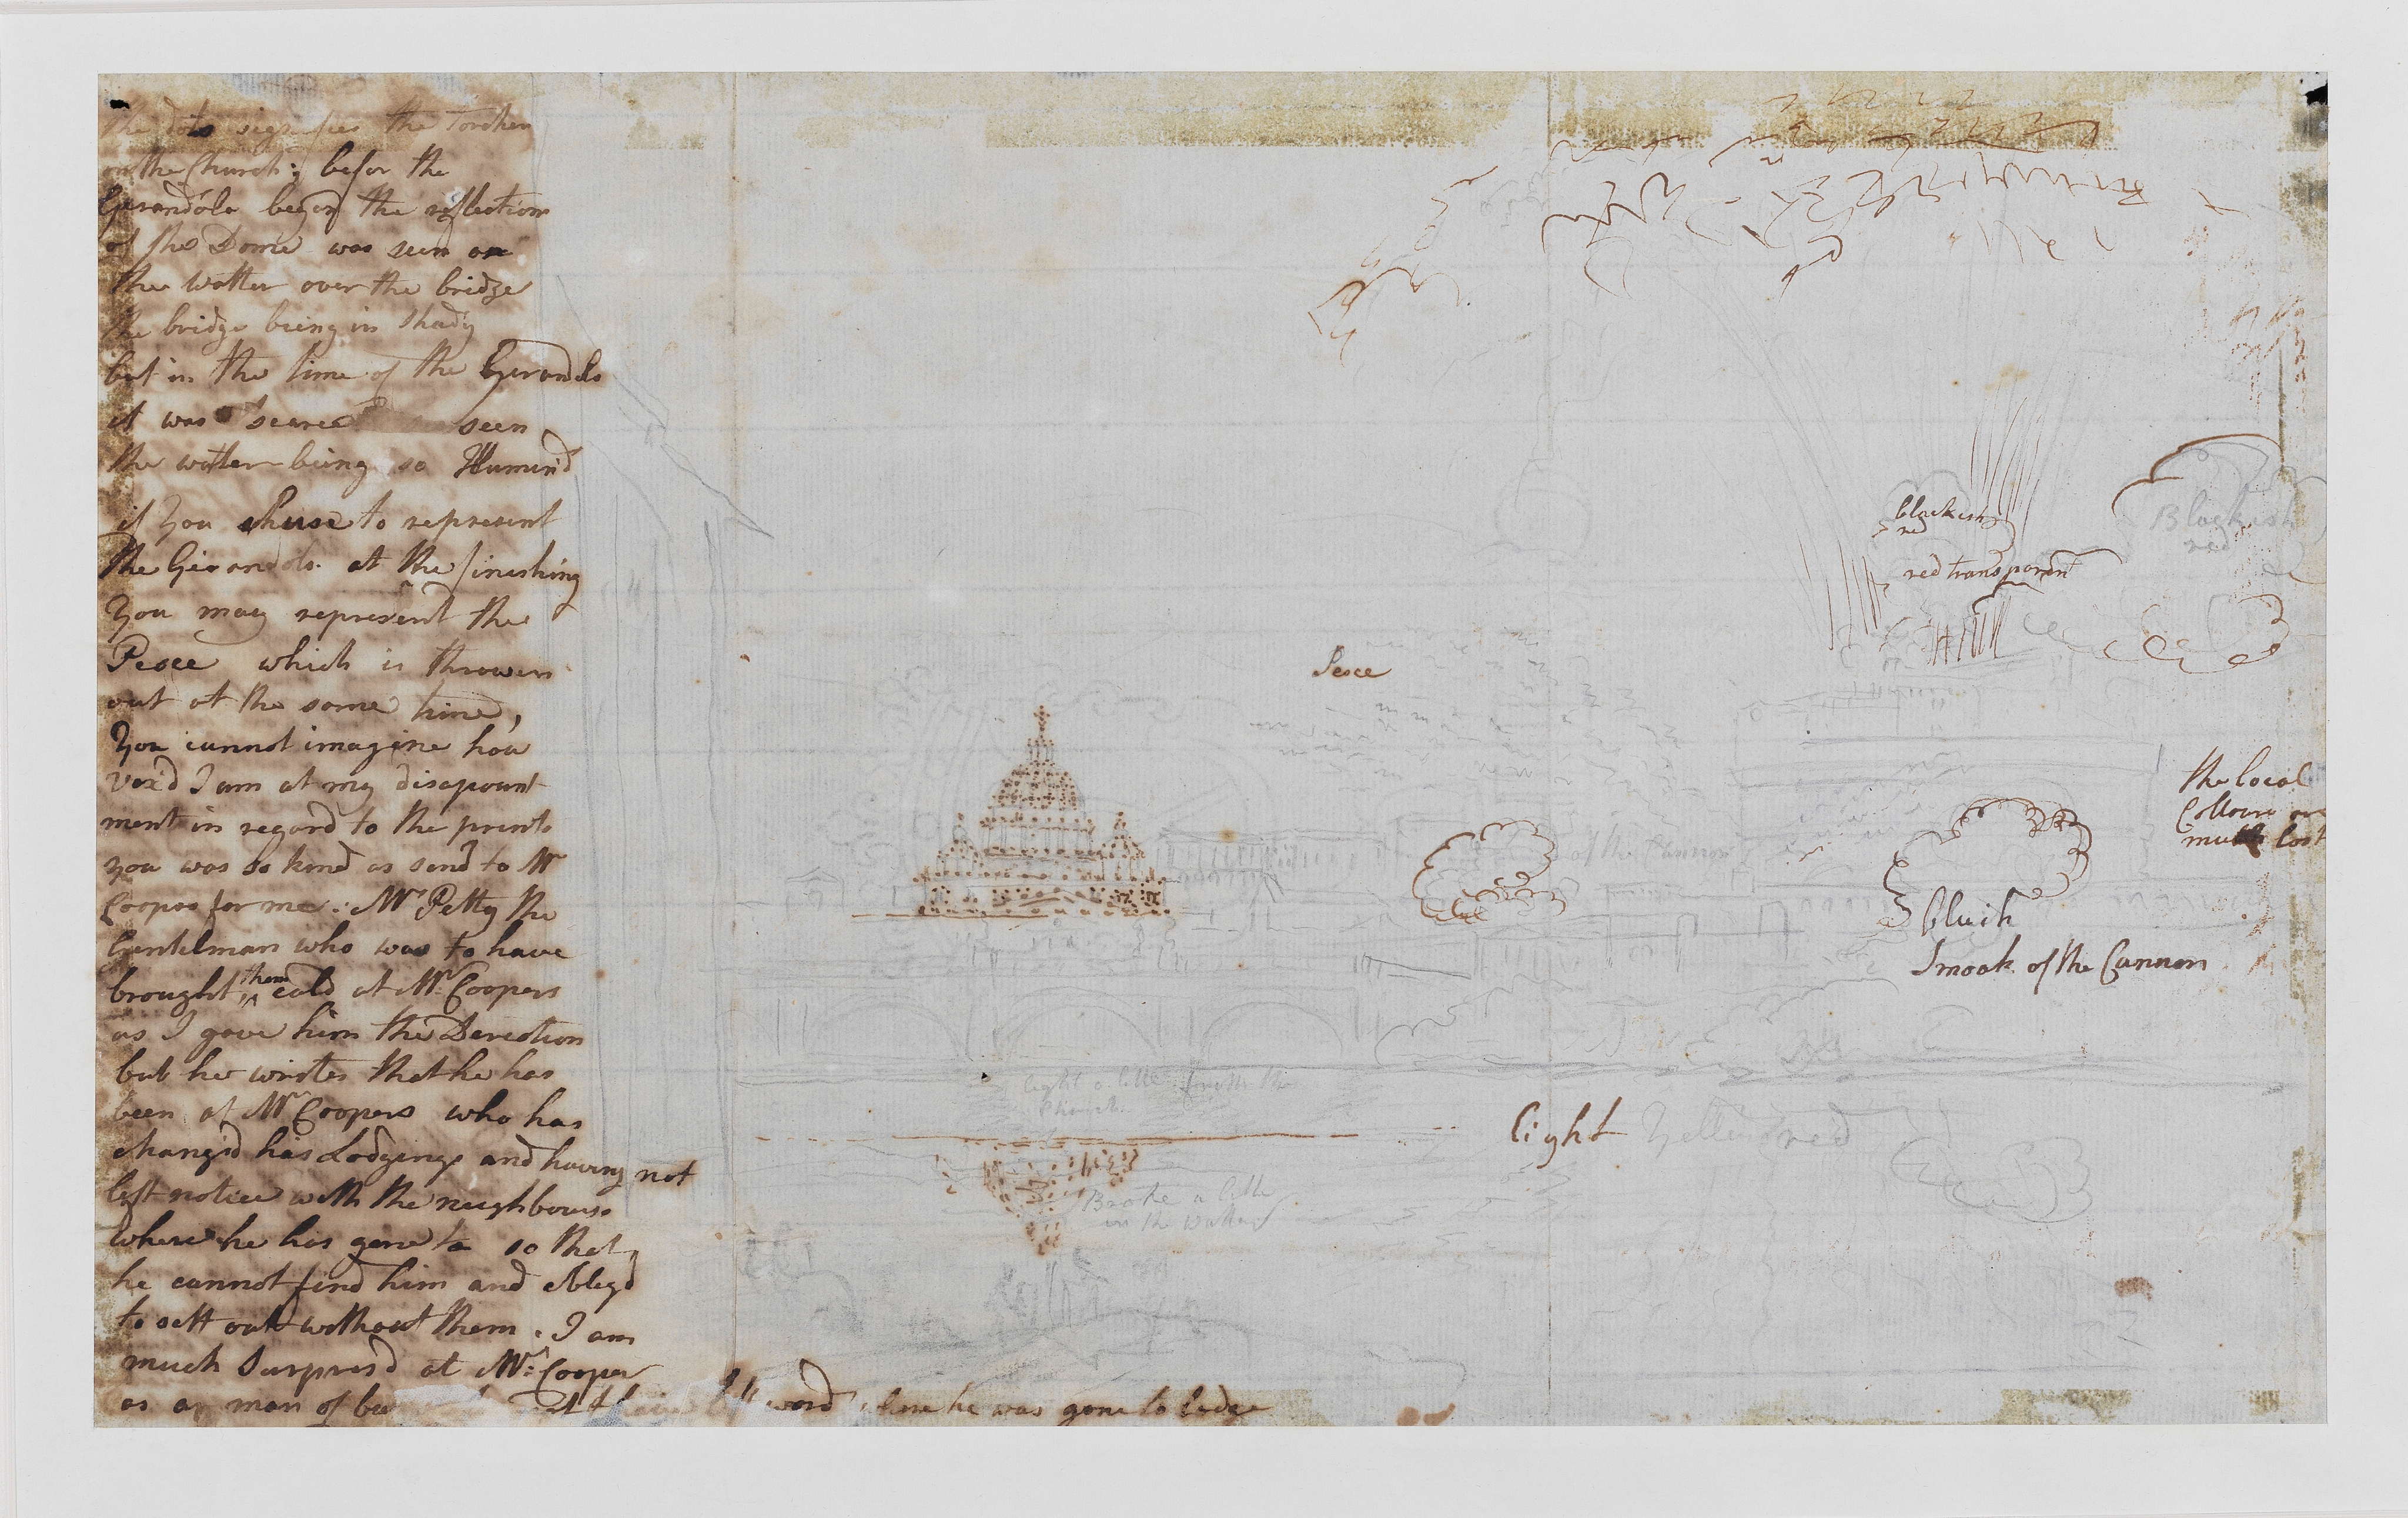 the dots signifies the torches
on the Church; befor the
Gerandola begon the reflection
of the Dome was seen on
the watter over the bridge
the bridge being in shady
but in the time of the Gerandolo
it was scarce seen
the watter being so Illumin'd
if you chuse to represent
the Girandola at the finishing
you may represent the
Pesce which is thrown
out at the same time,
you cannot imagine how
vex'd I am at my disapount
ment in regard to the prints
you was so kind as send to Mr
Cooper for me: Mr Petty the
Gentelman who was to have
brought them cald at Mr. Coopers
as I gave him the Derection
but he writes that he has
been at Mr Coopers who has
changd his Lodgings and having not
left notice with the neighbours
where he has gone to so that
he cannot find him and oblegd
to sett out without them. I am
much Surpresd at Mr: Cooper
as an man of left word where he was gone to lodge
Pesce
blackish
red
red transparent
Blackish
red
the local
Collours are
much lost
of the Cannon
bluish
Smoak of the Cannon
light a little from the
Church
light Yellow red
Broke a little
in the Watter